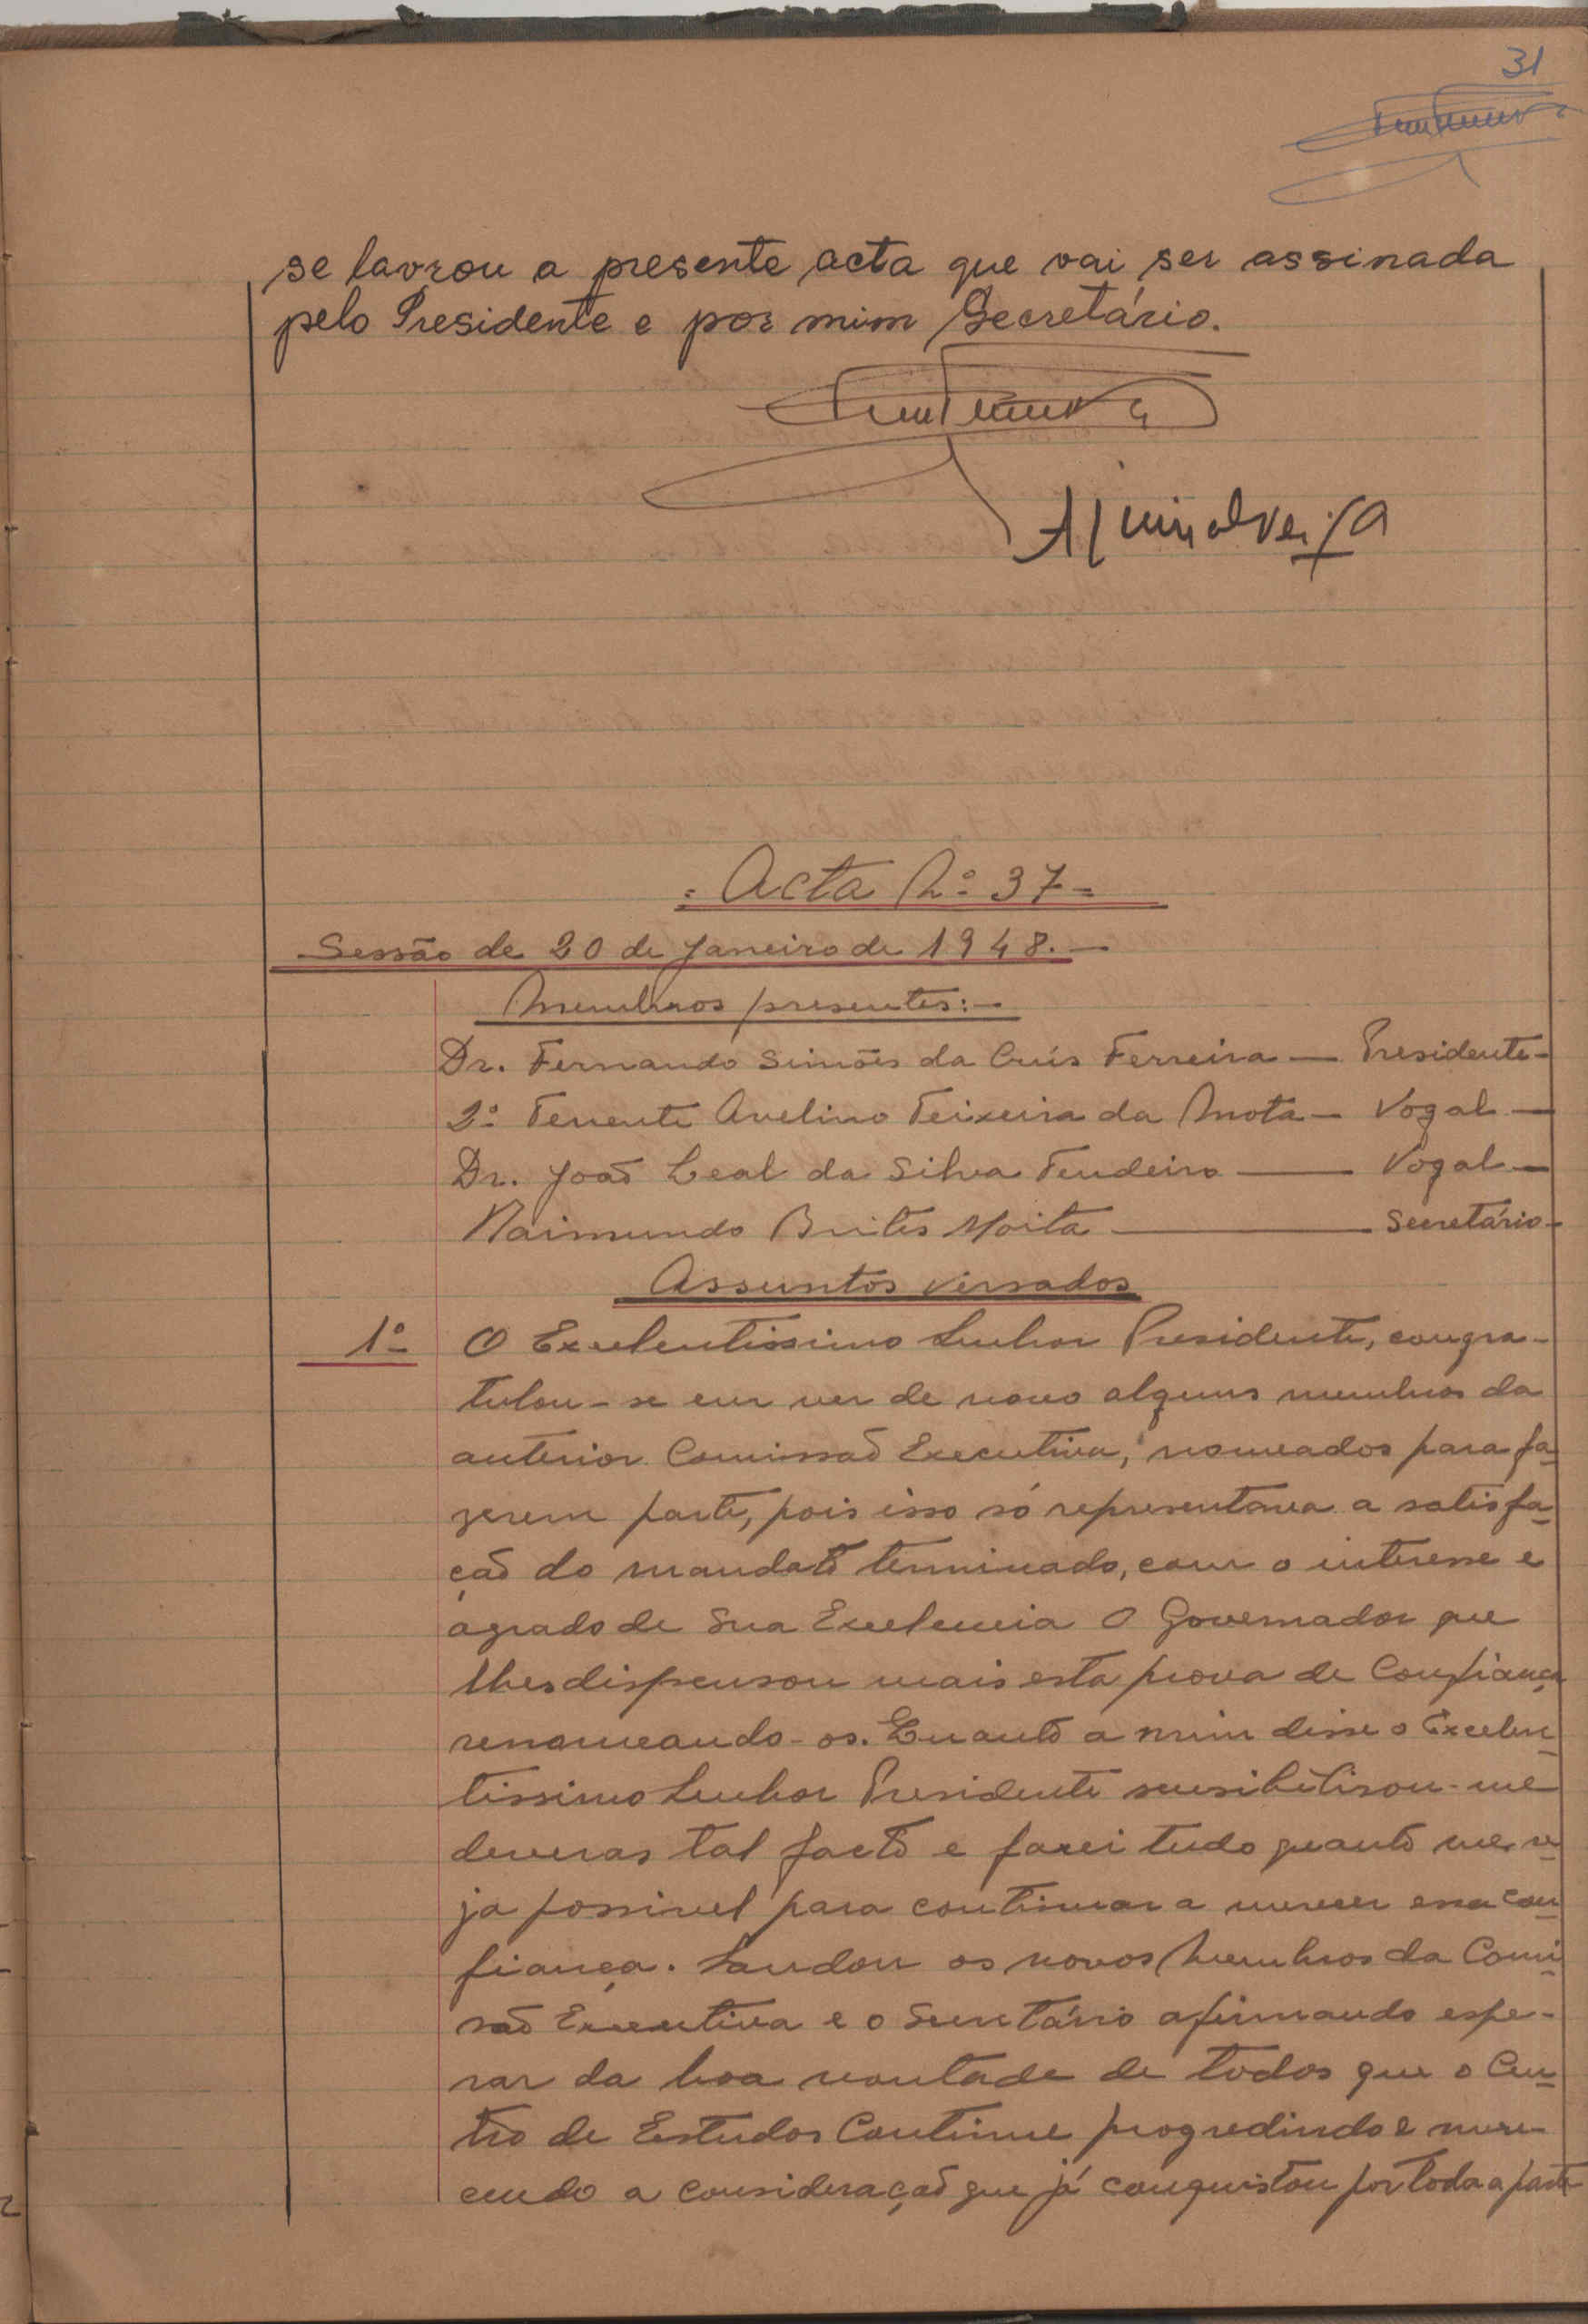 31
se lavrou a presente acta que vai ser assinada
pelo Presidente e por mim Secretário.
= Acta Nº 37 =
Sessão de 20 de Janeiro de 1948. —
Membros presentes: —
Dr. Fernando Simões da Crús Ferreira — Presidente —
2º Tenente Avelino Teixeira da Mota — Vogal —
Dr. João Leal da Silva Tendeiro — Vogal —
Raimundo Brites Moita — Secretário —
Assuntos versados
1º O Excelentissimo Senhor Presidente, congra-
tulou-se em ver de novo alguns membros da
anterior Comissão Executiva, nomeados para fa-
zerem parte, pois isso só representava a satisfa-
ção do mandato terminado, com o interesse e
agrado de Sua Excelencia O Governador que
lhes dispensou mais esta prova de Confiança
renomeando-os. Enquanto a mim disse o Excelen-
tissimo Senhor Presidente sensibilisou-me
deveras tal facto e farei tudo quanto me se-
ja possivel para continuar a merecer essa con-
fiança. Saudou os novos Membros da Comi-
são Executiva e o Secretário afirmando espe-
rar da boa vontade de todos que o Cen-
tro de Estudos Continue progredindo e mere-
cendo a consideração que já conquistou por toda a parte